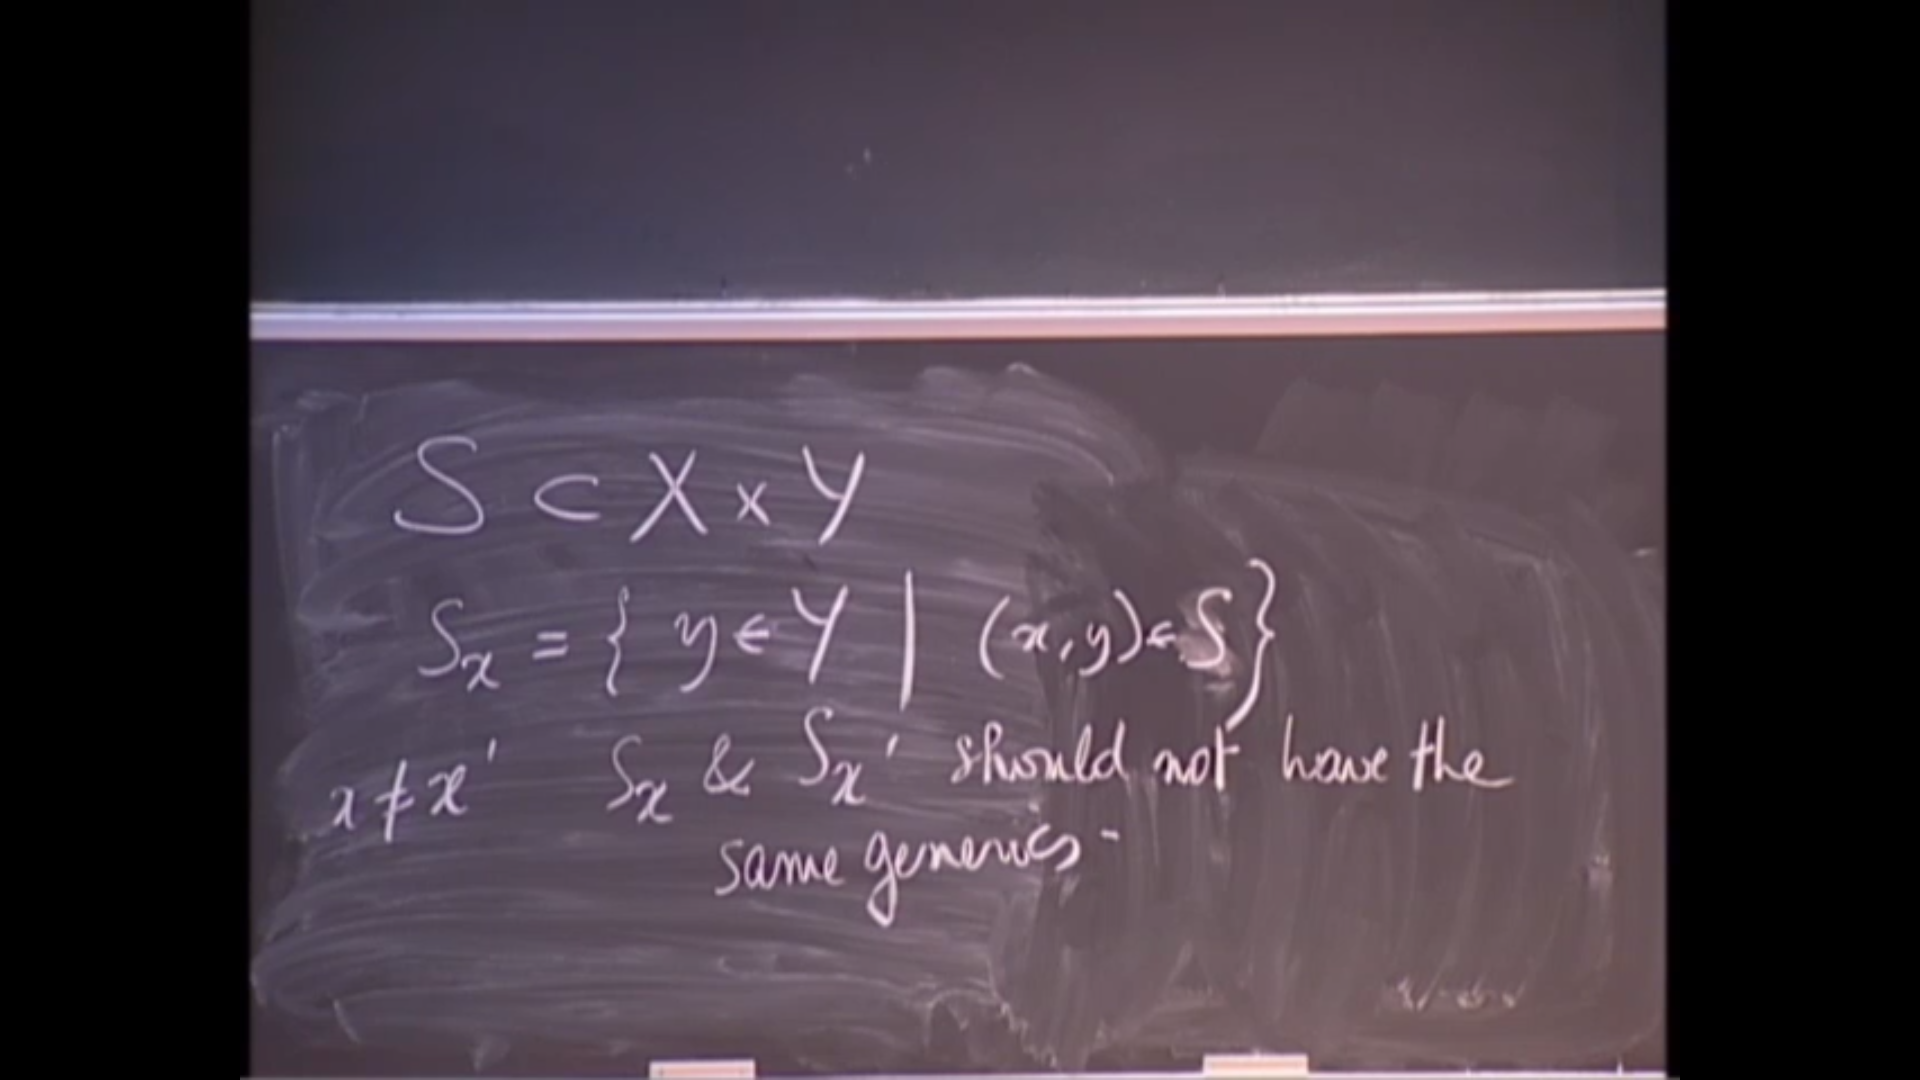 S ⊂ X × Y
S_x = { y ∈ Y | (x, y) ∈ S }
x ≠ x' S_x & S_x' should not have the
same generics -